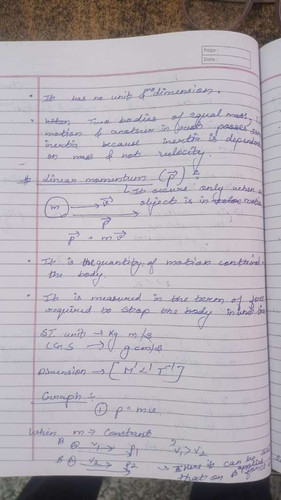 Page :
Date :
• It has no unit & dimension.
• When Two bodies of equal mass,
motion & another in push posses same
inertia because inertia is dependent
on mass & not velocity.
# linear momentum (p⃗) :
It occurs only when
object is in motion
m → v⃗
p⃗
p⃗ = m v⃗
• It is the quantity of motion contained
the body.
• It is measured in the term of force
required to stop the body in unit
SI unit → kg m/s
CGS → g cm/s
Dimension → [M¹L¹T⁻¹]
Graph :
① p = mv
When m → Constant
A v₁ → p₁ v₁ > v₂
B v₂ → p₂ → there can be
that on